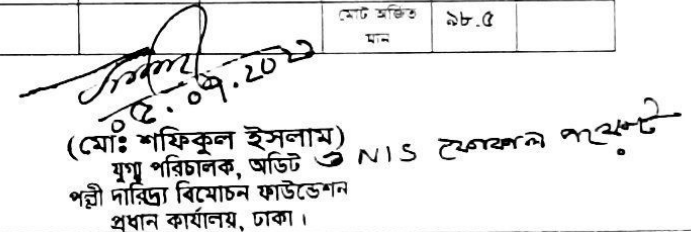 মোট অর্জিত মান ৯৮.৫
০৫.০৭.20২
(মোঃ শফিকুল ইসলাম)
যুগ্ম পরিচালক, অডিট ও NIS ফোকাল পয়েন্ট
পল্লী দারিদ্র্য বিমোচন ফাউন্ডেশন
প্রধান কার্যালয়, ঢাকা।